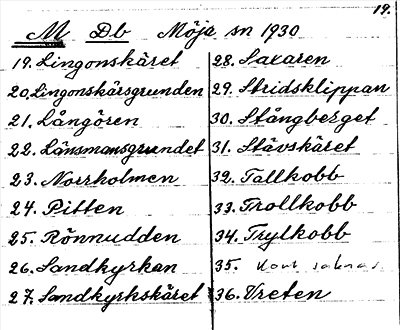 19.
M Db Möja sn 1930
19. Lingonskäret
20. Lingonskärsgrunden
21. Långören
22. Länsmansgrundet
23. Norrholmen
24. Pitten
25. Rönnudden
26. Sandkyrkan
27. Sandkyrkskäret
28. Saxaren
29. Stridsklippan
30. Stångberget
31. Stävskäret
32. Tallkobb
33. Trollkobb
34. Trylkobb
35. Kort saknas
36. Vreten